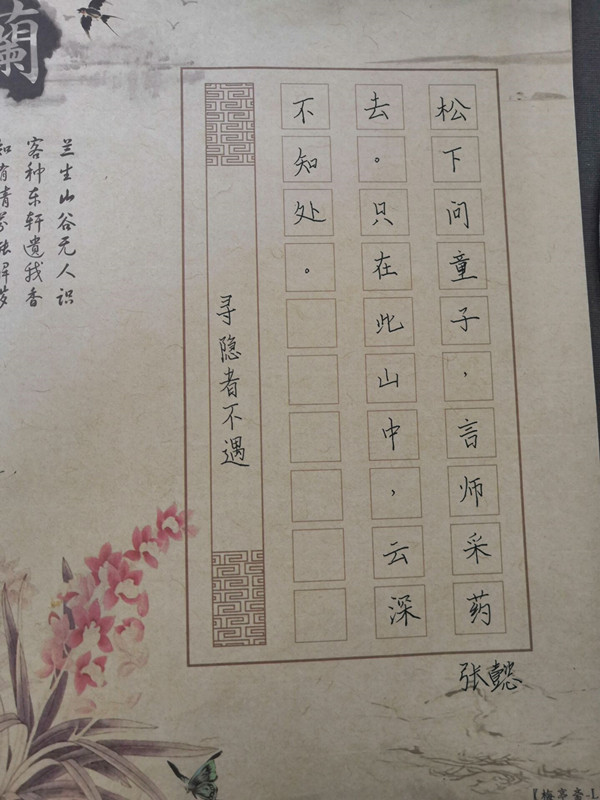 松下问童子，言师采药
去。只在此山中，云深
不知处。
寻隐者不遇
张懿
兰生山谷无人识
客种东轩遗我香
知有清芬能解秽
蘭